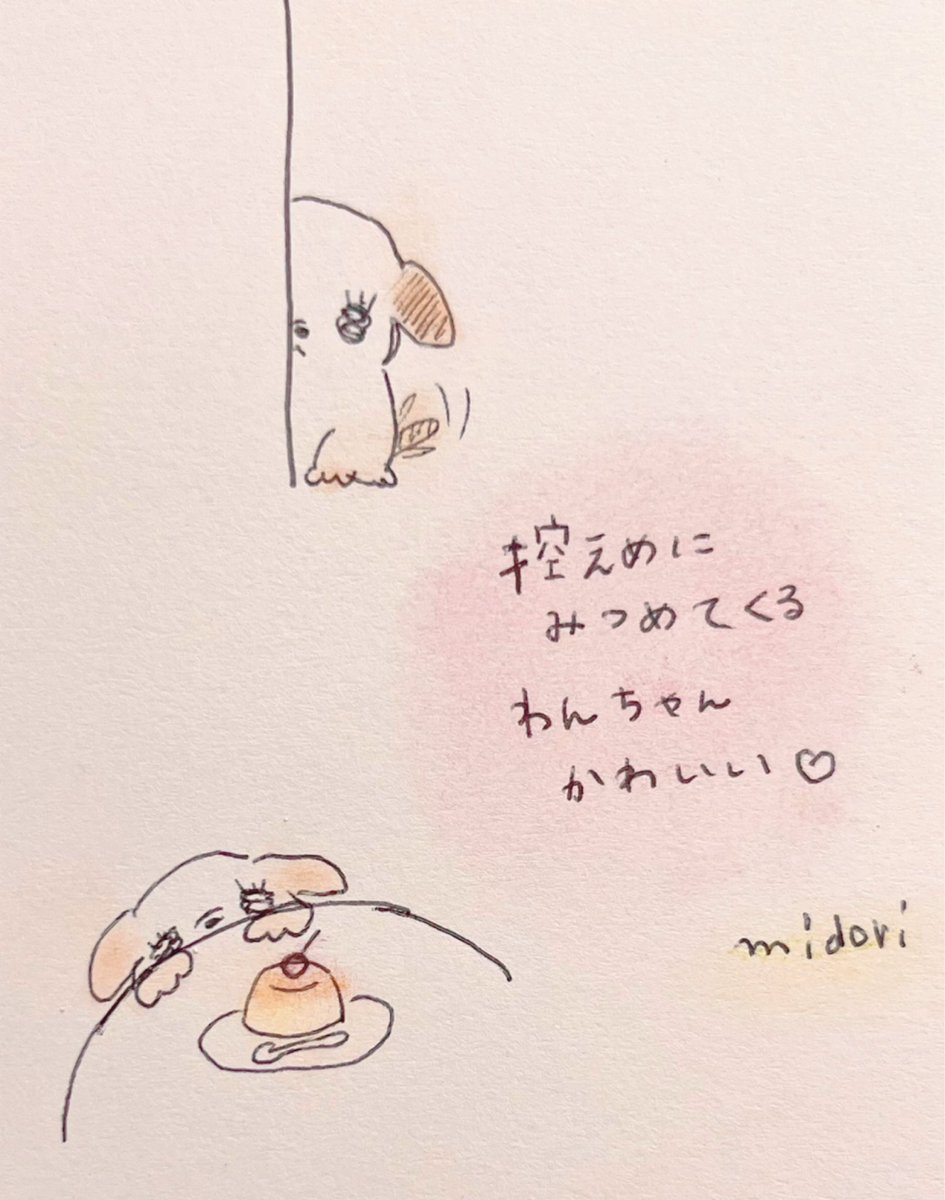 控えめに
みつめてくる
わんちゃん
かわいい♡
midori